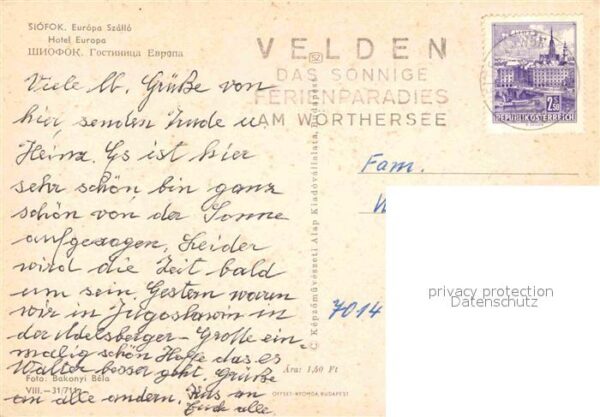 SIÓFOK. Európa Szálló
Hotel Europa
ШИОФОК. Гостиница Европа
Viele lb. Grüße von
hier, senden Trude u.
Heinz. Es ist hier
sehr schön bin ganz
schön von der Sonne
aufgezogen. Leider
wird die Zeit bald
um sein. Gestern waren
wir in Jugoslawien in
der Adelsberger-Grotte ein-
malig schön Hoffe das es
Walter besser geht. Grüße
an alle andern. Kus an
Euch alle
Foto: Bakonyi Béla
VIII.-31/711
VELDEN
DAS SONNIGE
FERIENPARADIES
AM WÖRTHERSEE
2.50
REPUBLIK ÖSTERREICH
© Képzőművészeti Alap Kiadóvállalata, Budapest
Fam.
7014
privacy protection
Datenschutz
Ára: 1,50 Ft
OFFSET-NYOMDA BUDAPEST